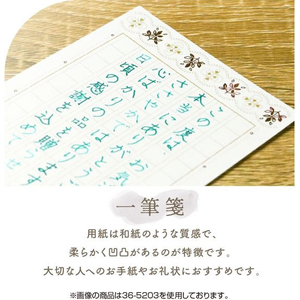 この度は
本当にありがとう
ささやかではあ
心ばかりのお
日頃の感謝を込め
の品を贈ります
一筆箋
用紙は和紙のような質感で、
柔らかく凹凸があるのが特徴です。
大切な人へのお手紙やお礼状におすすめです。
※画像の商品は36-5203を使用しております。